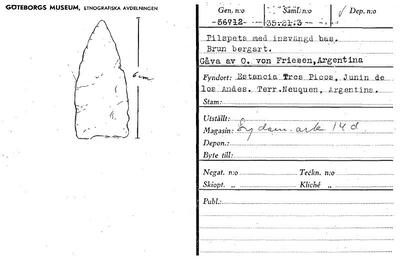 GÖTEBORGS MUSEUM, ETNOGRAFISKA AVDELNINGEN
6 cm
Gen. n:o Saml. n:o Dep. n:o
-56712- 35.21.3
Pilspets med insvängd bas.
Brun bergart.
Gåva av O. von Friesen, Argentina
Fyndort: Estancia Tres Picos, Junin de
los Andes. Terr. Neuquen, Argentina.
Stam:
Utställt:
Magasin: Sydam. ark 14 d
Depon.:
Byte till:
Negat. n:o Teckn. n:o
Skiopt. „ Kliché „
Publ.: